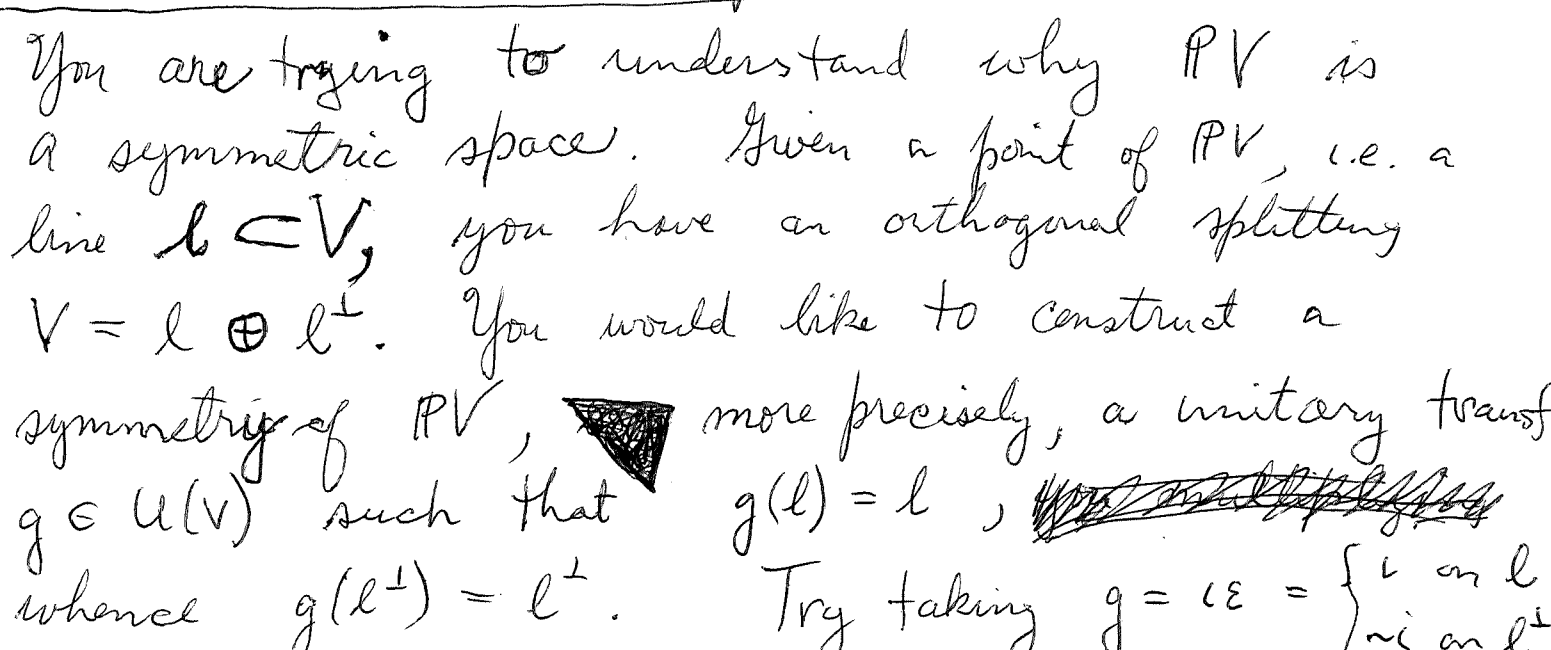 You are trying to understand why ℙV is
a symmetric space. Given a point of ℙV, i.e. a
line l ⊂ V, you have an orthogonal splitting
V = l ⊕ l^⊥. You would like to construct a
symmetry of ℙV, more precisely, a unitary transf
g ∈ U(V) such that g(l) = l,
whence g(l^⊥) = l^⊥. Try taking g = iε = { i on l
-i on l^⊥